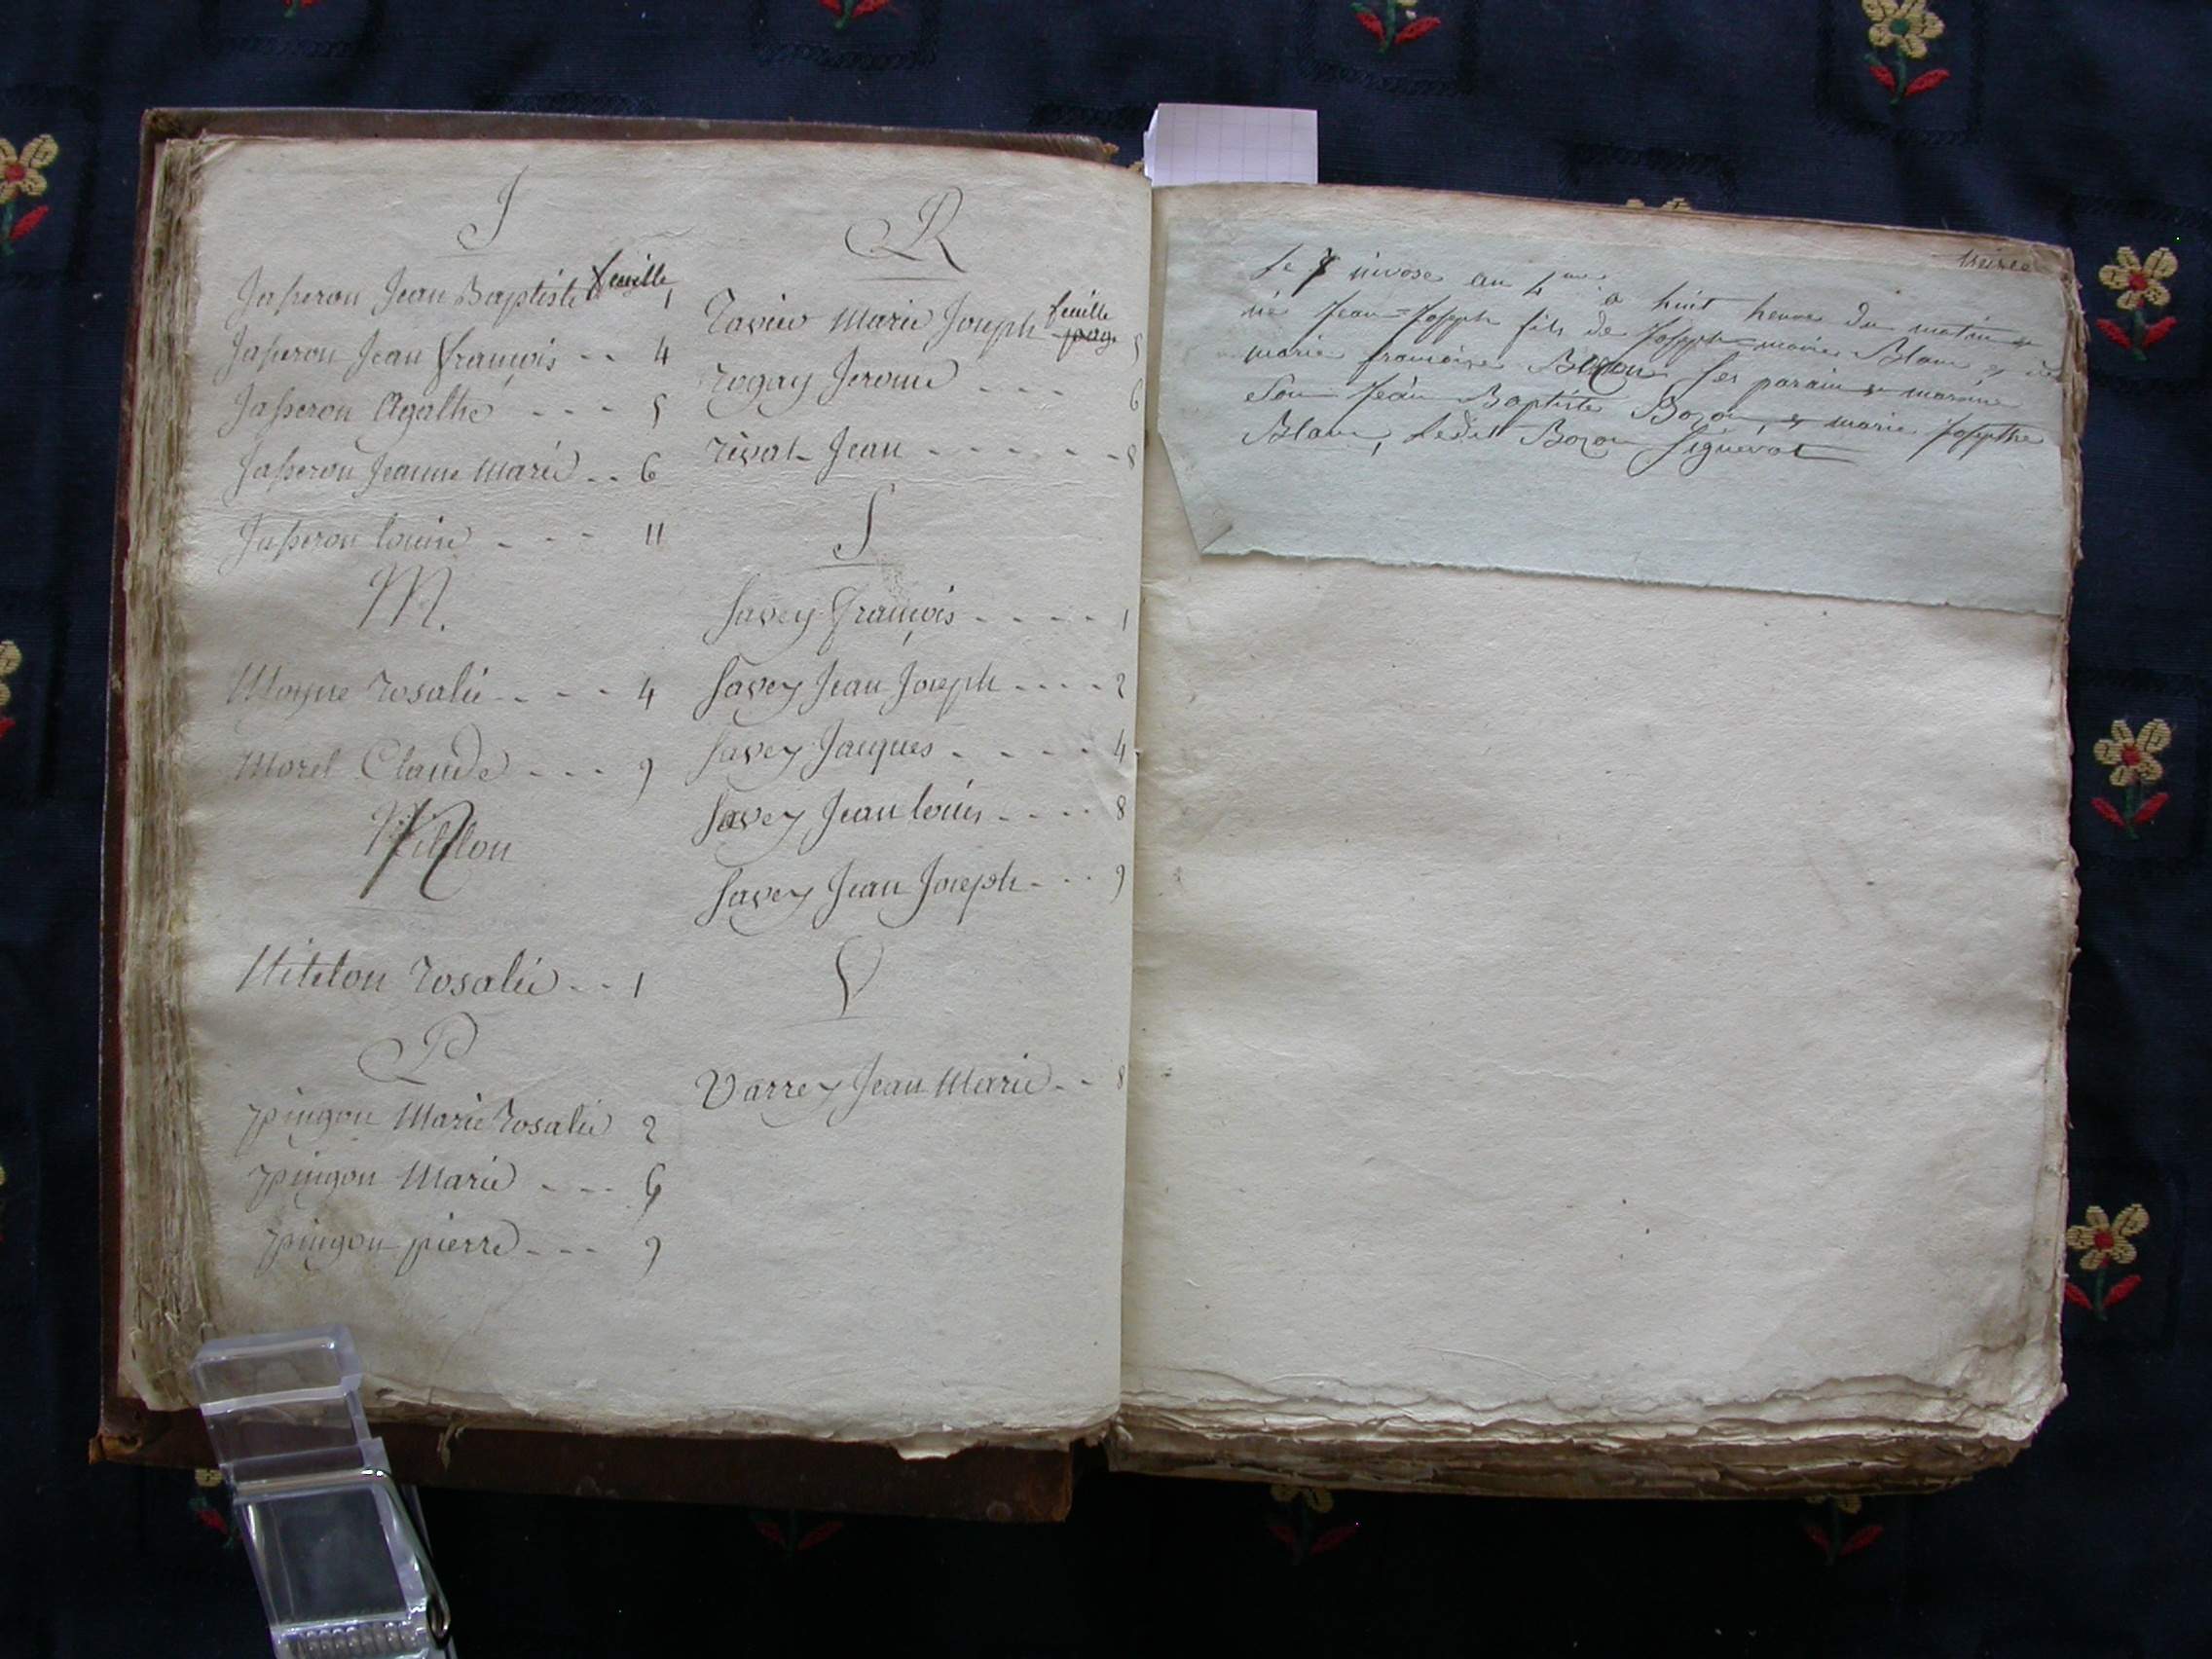 J
Jasseron Jean Baptiste feuille 1
Jasseron Jean françois -- 4
Jasseron Agathe --- 5
Jasseron Jeanne Marie -- 6
Jasseron louise --- 11
M.
Moyne rosalie --- 4
Morel Claude --- 9
N
Nitelon rosalie -- 1
P
pingon Marie rosalie 2
pingon Marie --- 6
pingon pierre --- 9
R
Ravier Marie Joseph feuille page 5
rogay Jerome --- 6
rivat Jean ------ 8
S
Savey françois ----- 1
Savey Jean Joseph ---- 2
Savey Jacques ----- 4
Savey Jean louis ---- 8
Savey Jean Joseph --- 9
V
Varrey Jean Marie -- 8
treize
le 7 nivose an 4me a huit heures du matin est
né Jean-Joseph fils de Joseph-marie Blanc et de
marie françoise Bozon ses parain et maraine
Son Jean Baptiste Bozon, et marie Josepthe
Blanc, ledit Bozon